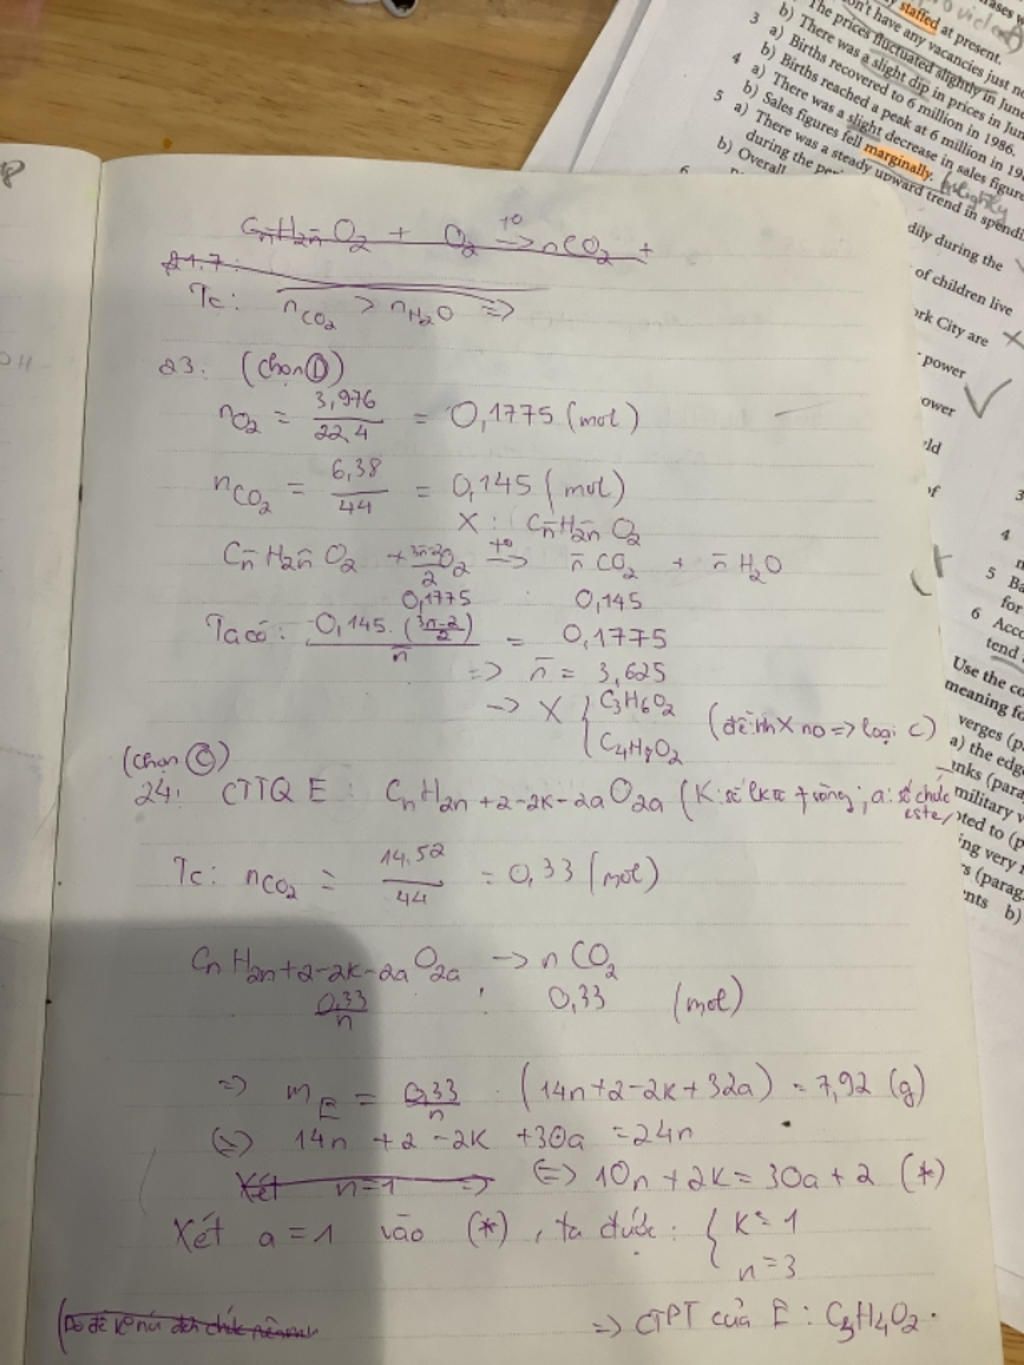 staffed at present.
on't have any vacancies just no
The prices fluctuated slightly in June
b) There was a slight dip in prices in Jun
3 a) Births recovered to 6 million in 1986.
b) Births reached a peak at 6 million in 19
4 a) There was a slight decrease in sales figure
b) Sales figures fell marginally. slightly
5 a) There was a steady upward trend in spendi
during the per
b) Overall
6
dily during the
of children live
ork City are
power
ower
ld
of
3
4
5 Ba
for
6 Acco
tend
Use the co
meaning fo
verges (p
a) the edge
inks (para
military v
oted to (p
ing very r
's (parag
nts b)
Cn̄H2n̄O2 + O2 t° → nCO2 +
21.7:
Tc: nCO2 > nH2O =>
23. (chọn D)
nO2 = 3,976 / 22,4 = 0,1775 (mol)
nCO2 = 6,38 / 44 = 0,145 (mol)
X: Cn̄H2n̄O2
Cn̄H2n̄O2 + 3n̄-2/2 O2 t° → n̄CO2 + n̄H2O
0,1775 : 0,145
Ta có: 0,145. (3n̄-2/2) / n̄ = 0,1775
=> n̄ = 3,625
-> X { C3H6O2 (đề: X no => loại C)
C4H8O2
(chọn C)
24: CTTQ E: CnH2n+2-2k-2aO2a (K: số lk π + vòng; a: số chức
este)
Tc: nCO2 = 14,52 / 44 = 0,33 (mol)
CnH2n+2-2k-2aO2a -> nCO2
0,33/n : 0,33 (mol)
=> mE = 0,33/n . (14n+2-2k+32a) = 7,92 (g)
<=> 14n + 2 - 2k + 30a = 24n
Xét n=1 => <=> 10n + 2k = 30a + 2 (*)
Xét a = 1 vào (*), ta được: { k = 1
n = 3
=> CTPT của E: C3H4O2.